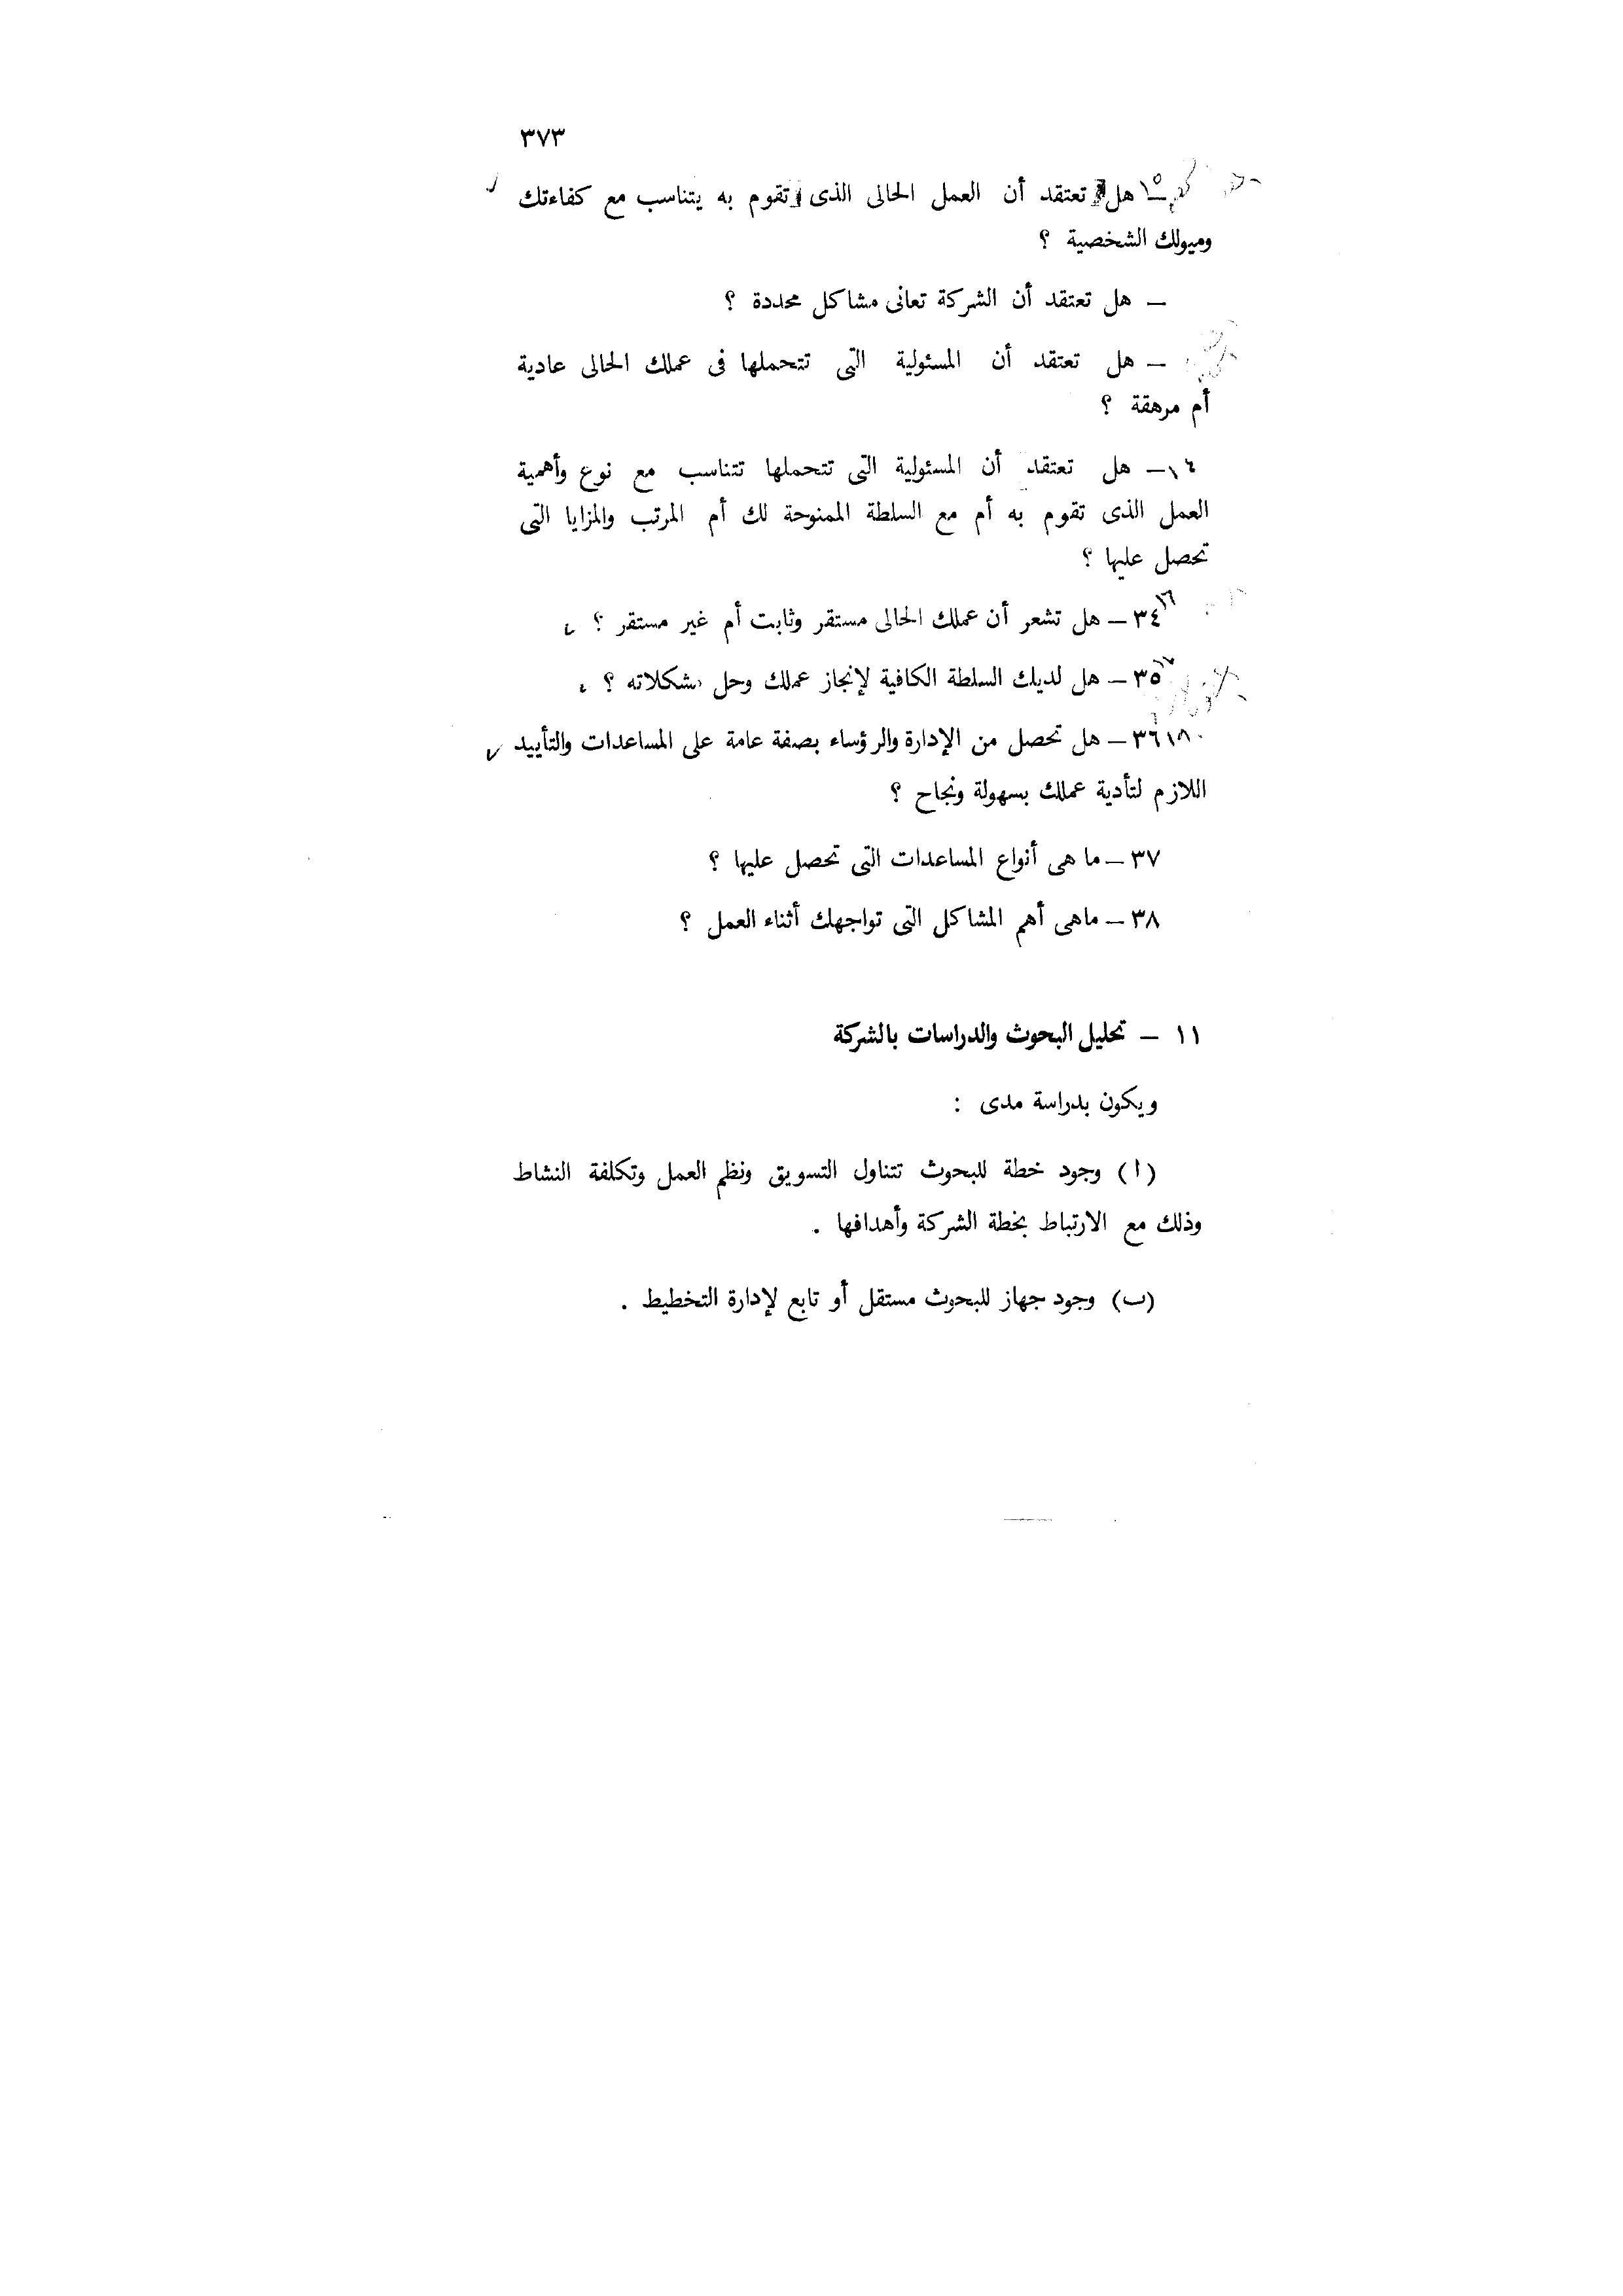 ٣٧٣
١٥ — هل تعتقد أن العمل الحالى الذى تقوم به يتناسب مع كفاءتك
وميولك الشخصية ؟
— هل تعتقد أن الشركة تعانى مشاكل محددة ؟
— هل تعتقد أن المسئولية التى تتحملها فى عملك الحالى عادية
أم مرهقة ؟
١٦ — هل تعتقد أن المسئولية التى تتحملها تتناسب مع نوع وأهمية
العمل الذى تقوم به أم مع السلطة الممنوحة لك أم المرتب والمزايا التى
تحصل عليها ؟
٣٤ — هل تشعر أن عملك الحالى مستقر وثابت أم غير مستقر ؟
٣٥ — هل لديك السلطة الكافية لإنجاز عملك وحل مشكلاته ؟
٣٦ — هل تحصل من الإدارة والرؤساء بصفة عامة على المساعدات والتأييد
اللازم لتأدية عملك بسهولة ونجاح ؟
٣٧ — ما هى أنواع المساعدات التى تحصل عليها ؟
٣٨ — ماهى أهم المشاكل التى تواجهك أثناء العمل ؟
١١ — تحليل البحوث والدراسات بالشركة
ويكون بدراسة مدى :
(ا) وجود خطة للبحوث تتناول التسويق ونظم العمل وتكلفة النشاط
وذلك مع الارتباط بخطة الشركة وأهدافها .
(ب) وجود جهاز للبحوث مستقل أو تابع لإدارة التخطيط .